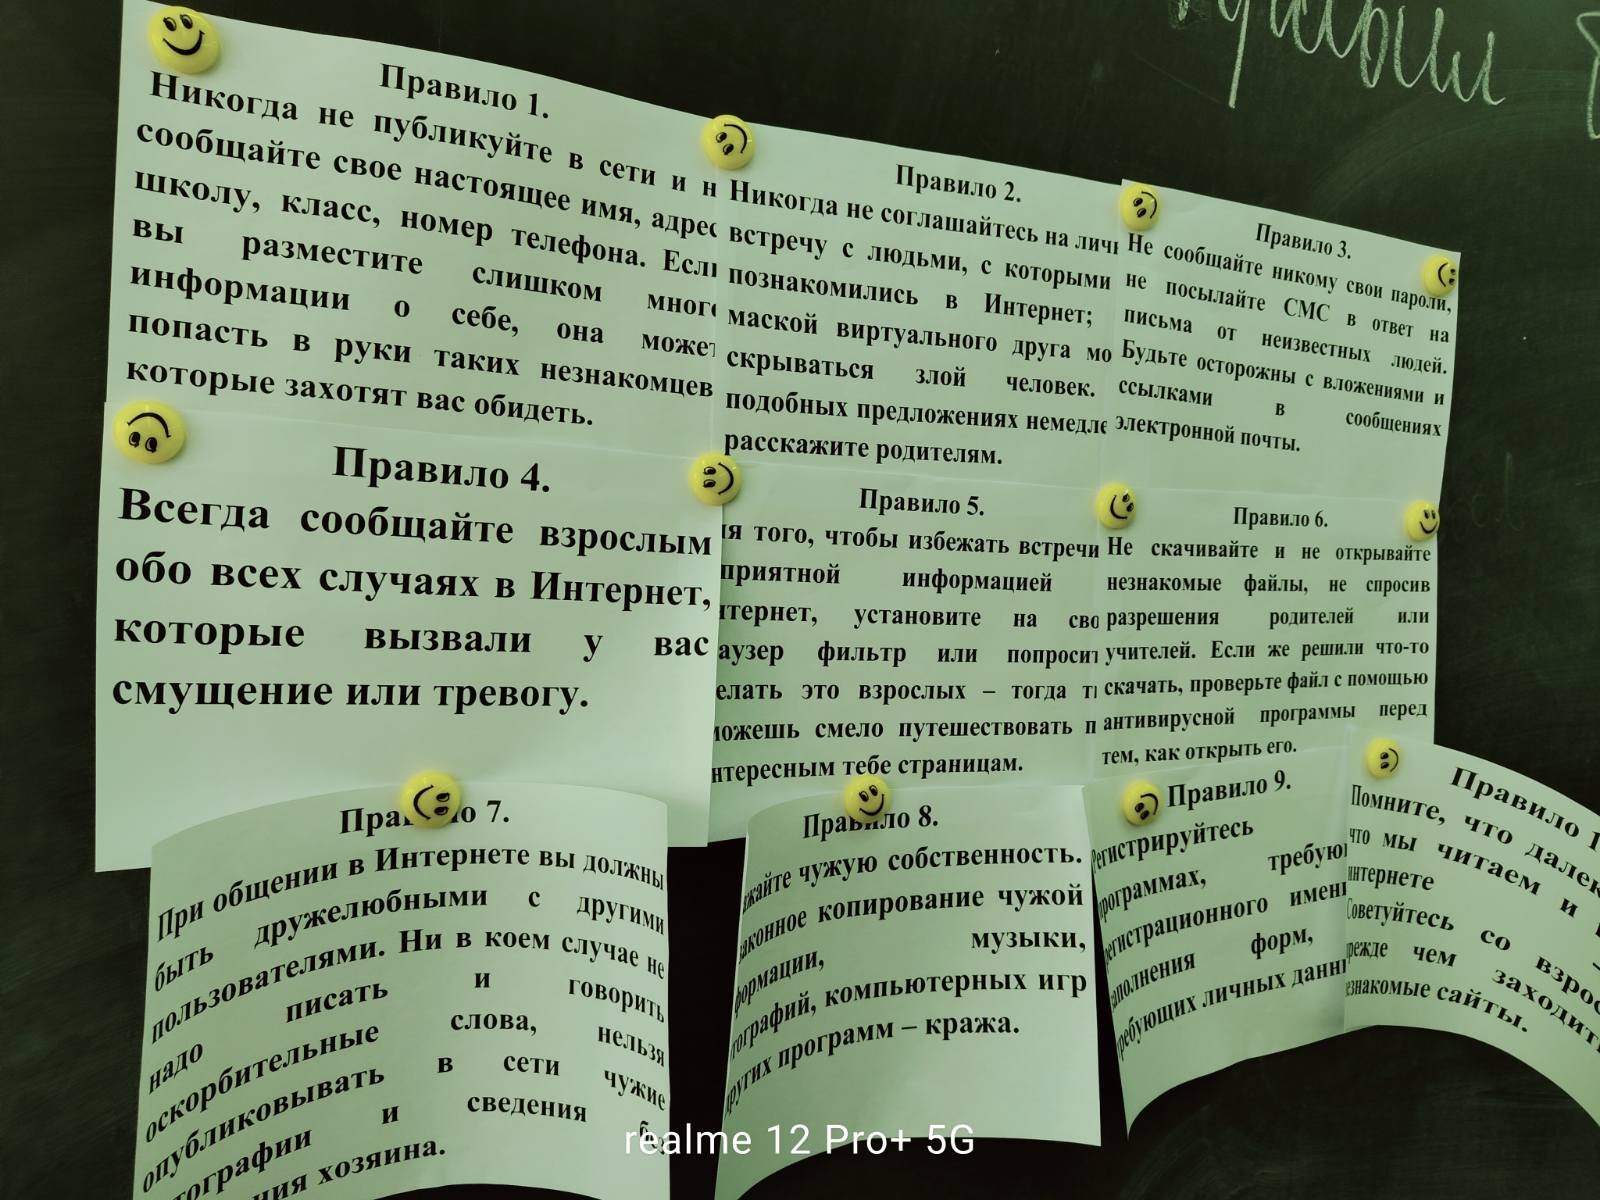 Правило 1.
Никогда не публикуйте в сети и н
сообщайте свое настоящее имя, адрес
школу, класс, номер телефона. Если
вы разместите слишком много
информации о себе, она может
попасть в руки таких незнакомцев
которые захотят вас обидеть.
Правило 2.
Никогда не соглашайтесь на личн
встречу с людьми, с которыми
познакомились в Интернет;
маской виртуального друга мо
скрываться злой человек.
подобных предложениях немедле
расскажите родителям.
Правило 3.
Не сообщайте никому свои пароли,
не посылайте СМС в ответ на
письма от неизвестных людей.
Будьте осторожны с вложениями и
ссылками в сообщениях
электронной почты.
Правило 4.
Всегда сообщайте взрослым
обо всех случаях в Интернет,
которые вызвали у вас
смущение или тревогу.
Правило 5.
ля того, чтобы избежать встречи
приятной информацией
нтернет, установите на сво
аузер фильтр или попросит
елать это взрослых – тогда т
можешь смело путешествовать п
нтересным тебе страницам.
Правило 6.
Не скачивайте и не открывайте
незнакомые файлы, не спросив
разрешения родителей или
учителей. Если же решили что-то
скачать, проверьте файл с помощью
антивирусной программы перед
тем, как открыть его.
Правило 7.
При общении в Интернете вы должны
быть дружелюбными с другими
пользователями. Ни в коем случае не
надо писать и говорить
оскорбительные слова, нельзя
опубликовывать в сети чужие
тографии и сведения
ния хозяина.
Правило 8.
ажайте чужую собственность.
законное копирование чужой
формации, музыки,
тографий, компьютерных игр
других программ – кража.
Правило 9.
Регистрируйтесь
программах, требую
регистрационного имени
заполнения форм,
требующих личных данн
Правило 1
Помните, что далек
что мы читаем и
интернете –
Советуйтесь со взрос
прежде чем заходить
незнакомые сайты.
realme 12 Pro+ 5G